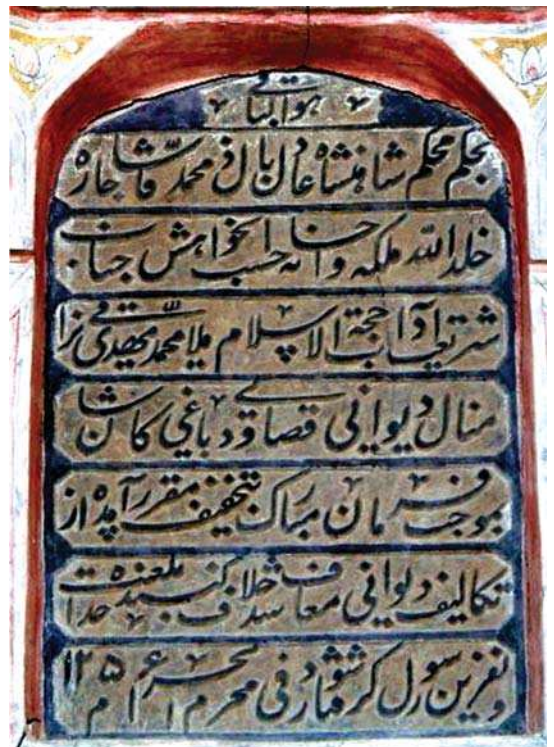 هو الباقی
بحکم محکم شاهنشاه عادل باذل محمد شاه قاجار
خلد الله ملکه و احسانه حسب الخواهش جناب
شریعت آداب حجة الاسلام ملا محمد مهدی نراقی
منال دیوانی قصابی و دباغی کاشان
بموجب فرمان مبارک بتخفیف مقرر آمده از
تکالیف دیوانی معاف شد خلاف کننده بلعنت خدا
و نفرین رسول گرفتار شود فی محرم الحرام ۱۲۵۶